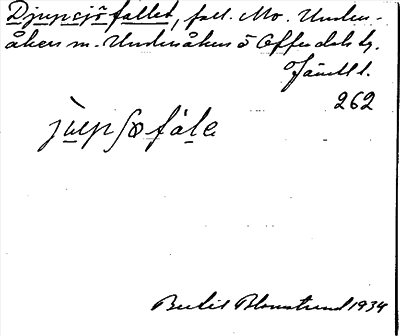 Djupsjöfallet, fall. Mo. Unders-
åkers sn. Undersåkers o Offerdals tg.
Jämtl l.
262
jùpʃøfále
Bertil Blomstrand 1934